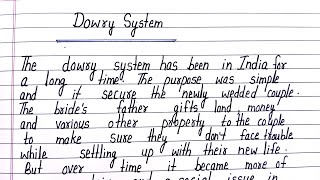 Dowry System
The dowry system has been in India for
a long time. The purpose was simple
and it secure the newly wedded couple.
The bride's father gifts land money
and various other property to the couple
to make sure they don't face trouble
while settling up with their new life.
But over time it became more of
and a social issue in